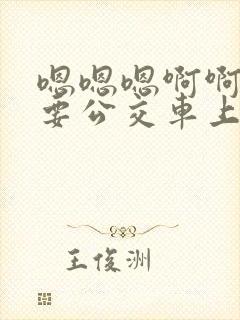 嗯嗯嗯啊啊
要公交車上
王俊洲